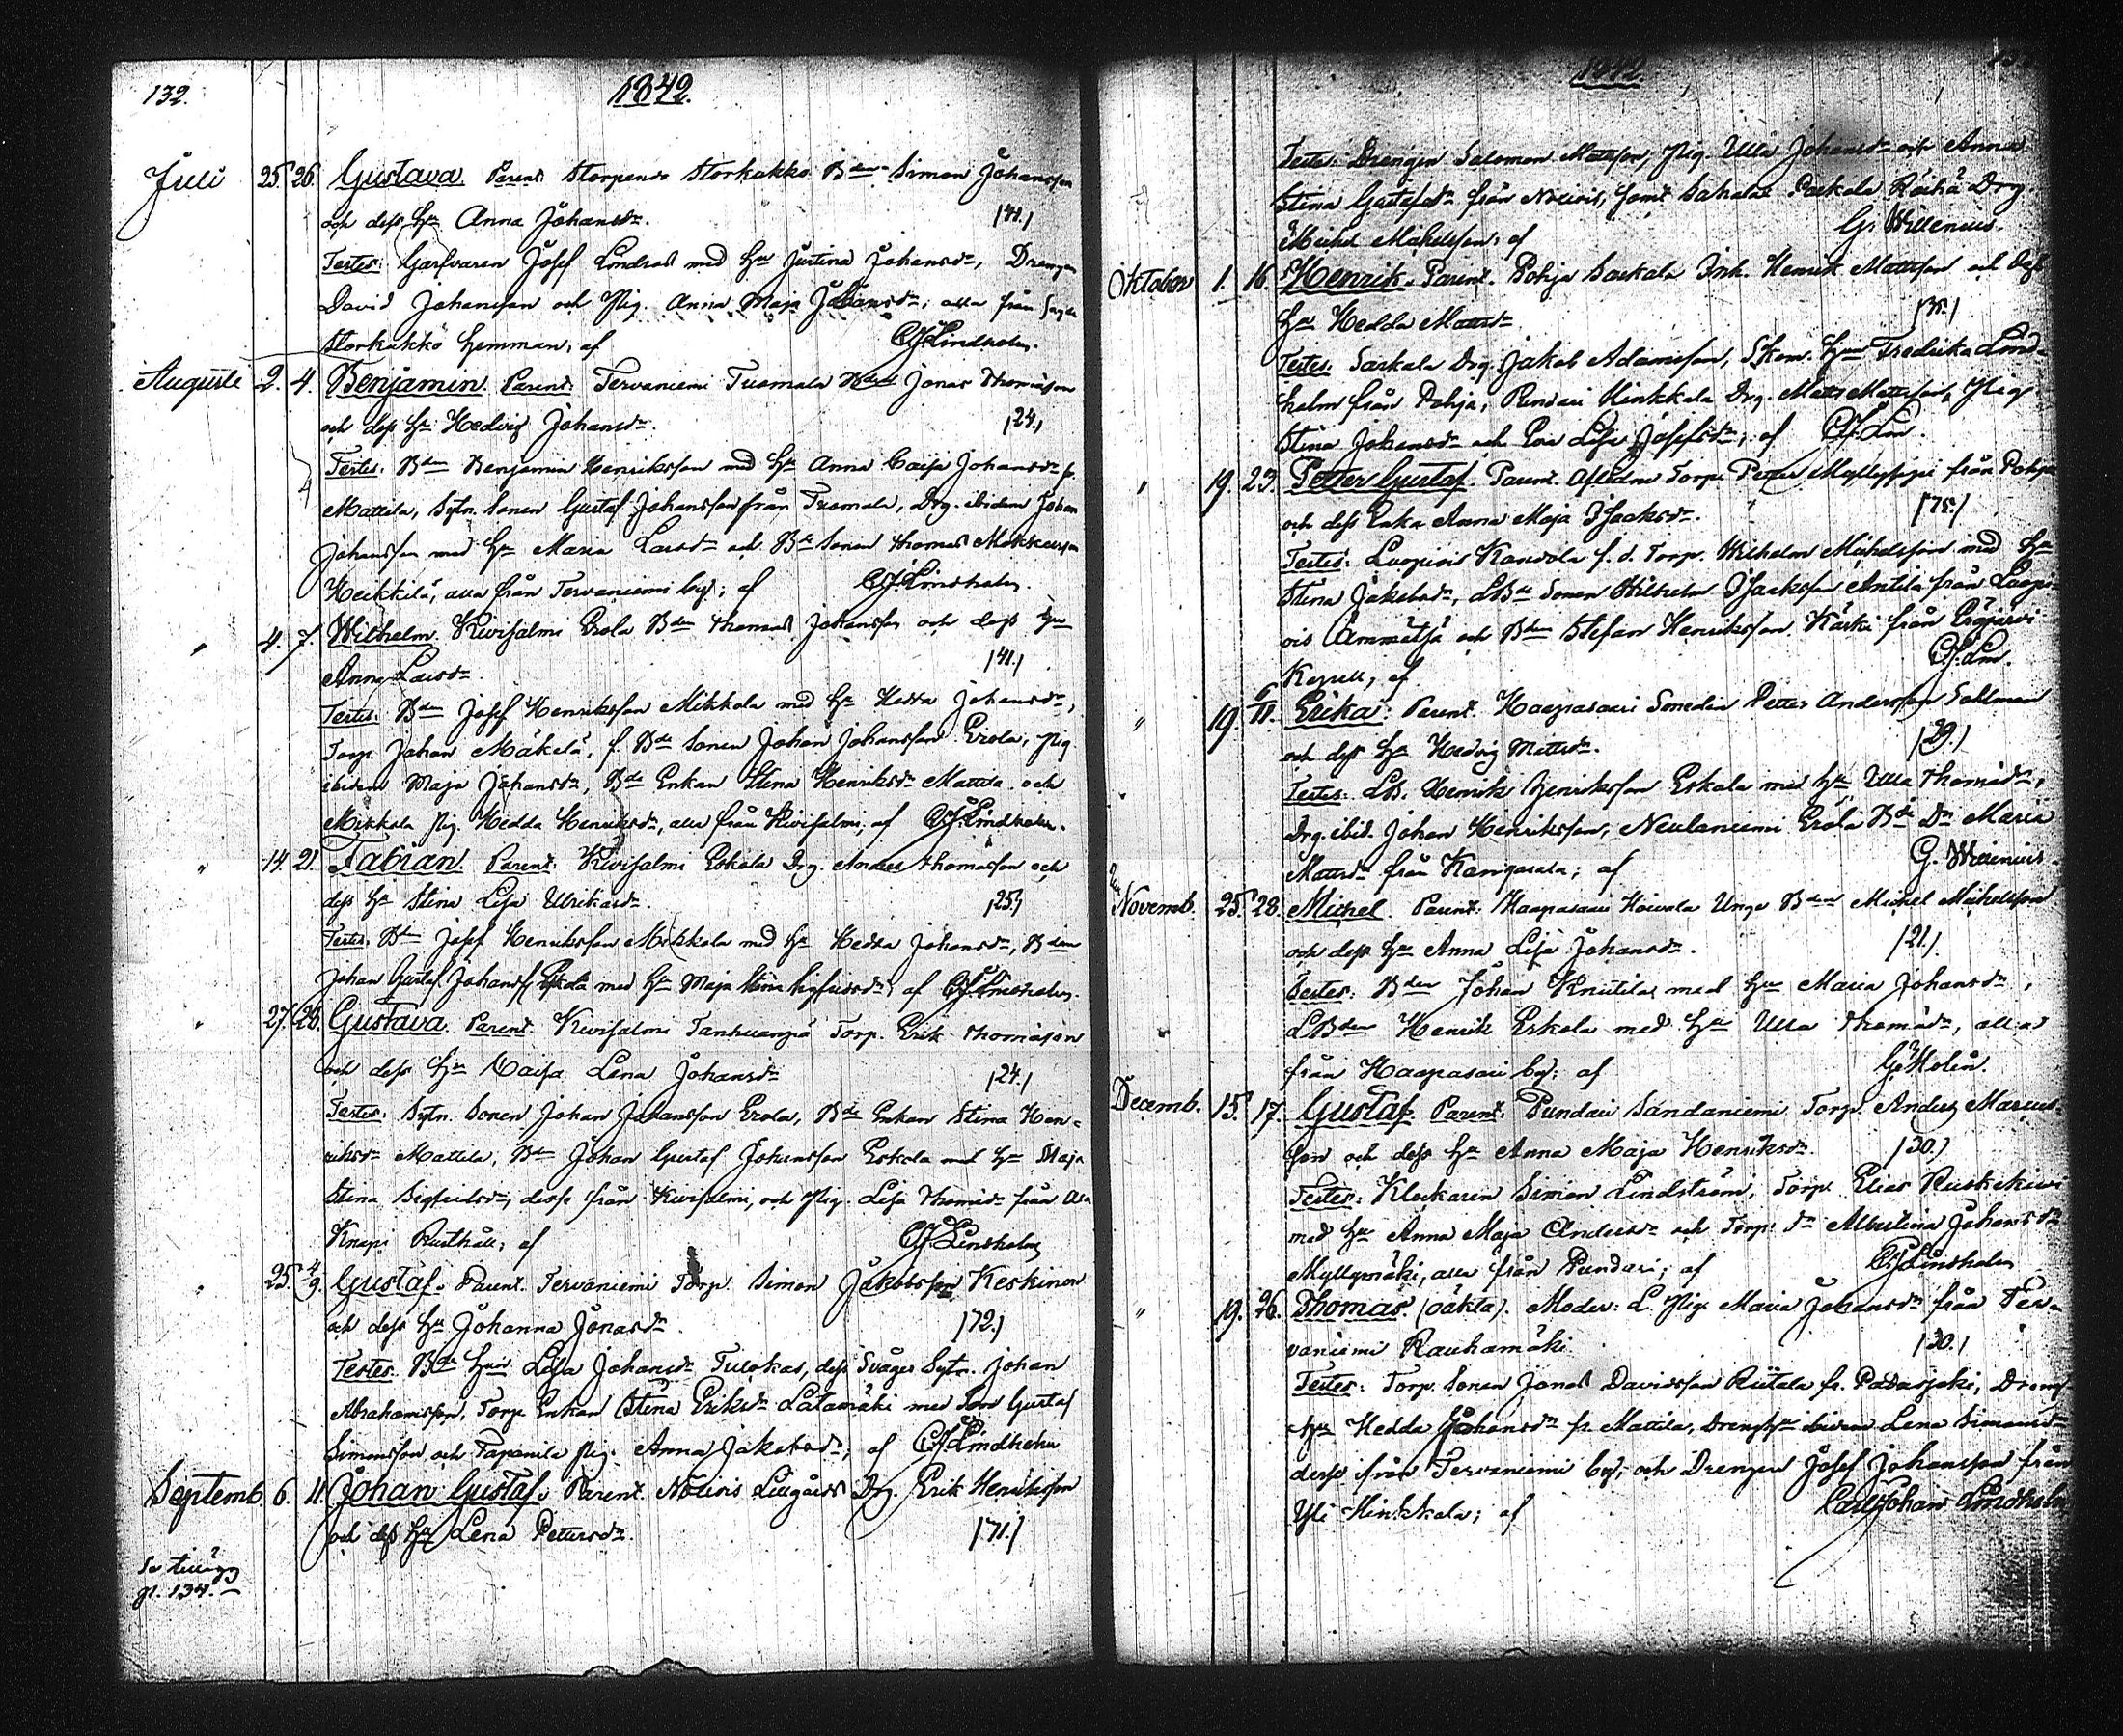 132.
1842.
Juli 25. 26. Gustava. Parent. Storpens Storkukko Bden Simon Johansson
och dess Hu Anna Johansdr. /41./
Testes: Garfvaren Josef Lindroos med Hu Justina Johansdr, Drengen
David Johansson och Pig. Anna Maja Johansdr; alla från
Storkukko hemman, af CJLindholm.
Augusti 2. 4. Benjamin. Parent. Tervaniemi Tuomala Jonas Thomasson
och dess Hu Hedvig Johansdr. /24./
Testes: Bden Benjamin Henriksson med Hu Anna Caisa Johansdr fr.
Mattila, Sytn. Sonen Gustaf Johansson från Tuomala, Drg. ibidem Johan
Johansson med Hu Maria Larsdr och Bde Sonen Thomas
Heikkilä, alla från Tervaniemi by; af CJLindholm
" 4. 7. Wilhelm. Kivisalmi Erola Bden Thomas Johansson och dess Hu
Anna Larsdr. /41./
Testes: Bden Josef Henriksson Mikkola med Hu Hedda Johansdr,
Torp. Johan Mäkelä, f. Bde Sonen Johan Johansson Erola, Pig
ibidem Maja Johansdr, Bde Enkan Stina Henriksdr Mattila och
Mikkola Pig. Hedda Henriksdr, alla från Kivisalmi; af CJLindholm.
" 14. 21. Fabian. Parent. Kivisalmi Eskola Drg. Anders Thomasson och
dess Hu Stina Lisa Ulrikasdr. /25./
Testes: Bden Josef Henriksson Mikkola med Hu Hedda Johansdr, Bden
Johan Gustaf Johanss. Eskola med Hu Maja Stina Sigfridsdr; af CJLindholm.
" 27. 28. Gustava. Parent. Kivisalmi Torp. Erik Thomasson
och dess Hu Caisa Lena Johansdr /24./
Testes: Sytn. Sonen Johan Johansson Erola, Bde Enkan Stina Hen-
riksdr Mattila, Bden Johan Gustaf Johansson Eskola med Hu Maja
Stina Sigfridsdr, desse från Kivisalmi, och Pig. Lisa Thomasdr från
Rusthåll; af CJLindholm
" 25. 4/9. Gustaf. Parent. Tervaniemi Torp. Simon Jakobsson Keskinen
och dess Hu Johanna Jonasdr. /72./
Testes: Bde Lisa Johansdr Tulokas, dess Svåger Sytn. Johan
Abrahamsson, Torp. Enkan Stina Eriksdr Latomäki med Son Gustaf
Simonsson och Tapanila Pig. Anna Jakobsdr; af CJLindholm
Septemb. 6. 11. Johan Gustaf. Parent. Drg. Erik Henriksson
och dess Hu Lena Pettersdr. /71./
Se tillägg
p. 134.
1842.
Testes: Drengen Salomon Mattsson, Pig. Ulla Johansdr och Anna
Stina Gustafsdr från samt Sahalax Drg.
Michel Michelsson; af G. Willenius.
Oktober 1. 16. Henrik. Parent. Pohja Sarkala Inh. Henrik Mattsson och dess
Hu Hedda Mattsdr /35./
Testes: Sarkala Drg. Jakob Adamsson, Skom. Hun Fredrika Lind-
holm från Pohja, Pundari Hinkkala Drg. Matts Mattsson, Pig
Stina Johansdr och Eva Lisa Josefsdr; af CJLm.
" 19. 23. Petter Gustaf. Parent. Afledne Torp. Petter från Pohja
och dess Enka Anna Maja Isaksdr. /75./
Testes: Luopiois f. d. Torp. Wilhelm Michelsson med Hu
Stina Jakobsdr, LBde Sonen Wilhelm Isaksson Anttila från Luopi-
ois Ämmätsä och Bden Stefan Henriksson Kärki från
Kapell, af CJLm.
" 19. 6/11. Erika. Parent. Haapasaari Smeden Petter Andersson Sahlman
och dess Hu Hedvig Mattsdr. /29./
Testes: LB. Henrik Henriksson Eskola med Hu Ulla Thomasdr,
Drg. ibid. Johan Henriksson, Neulaniemi Erola Bde Dr Maria
Mattsdr från Kangasala; af G. Willenius.
Novemb. 25. 28. Michel. Parent. Haapasaari Hoivala Unge Bden Michel Michelsson
och dess Hu Anna Lisa Johansdr. /21./
Testes: Bden Johan Knutila med Hu Maria Johansdr,
LBden Henrik Eskola med Hu Ulla Thomasdr, alla
från Haapasaari by; af G. Molin.
Decemb. 15. 17. Gustaf. Parent. Pundari Sandaniemi Torp. Anders Marcus-
son och dess Hu Anna Maja Henriksdr. /30./
Testes: Klockaren Simon Lindström, Torp. Elias Ruskekivi
med Hu Anna Maja Andersdr och Torp. Dr Albertina Johansdr
Myllymäki, alla från Pundari; af CJLindholm
" 19. 26. Thomas (oäkta). Moder: L. Pig. Maria Johansdr från Ter-
vaniemi Rauhamäki. /30./
Testes: Torp. Sonen Jonas Davidsson Riitala fr. Padasjoki, Dreng-
Hu Hedda Johansdr fr. Mattila, Drengh. ibidem Lena Simonsdr
desse ifrån Tervaniemi by, och Drengen Josef Johansson från
Yli Hinkkala; af Carl Johan Lindholm